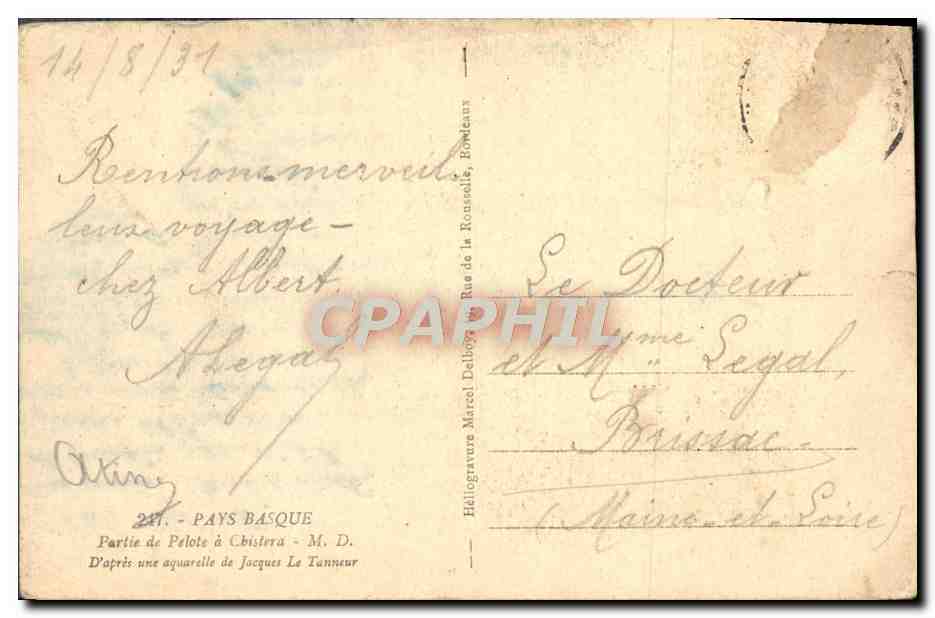 14/8/31
Rentrons merveil
leux voyage -
chez Albert.
ALegal
217. - PAYS BASQUE
Partie de Pelote à Chistera - M. D.
D'après une aquarelle de Jacques Le Tanneur
Héliogravure Marcel Delboy, Rue de la Rousselle, Bordeaux
CPAPHIL
Le Docteur
et Mme Legal,
Brissac -
(Maine-et-Loire)